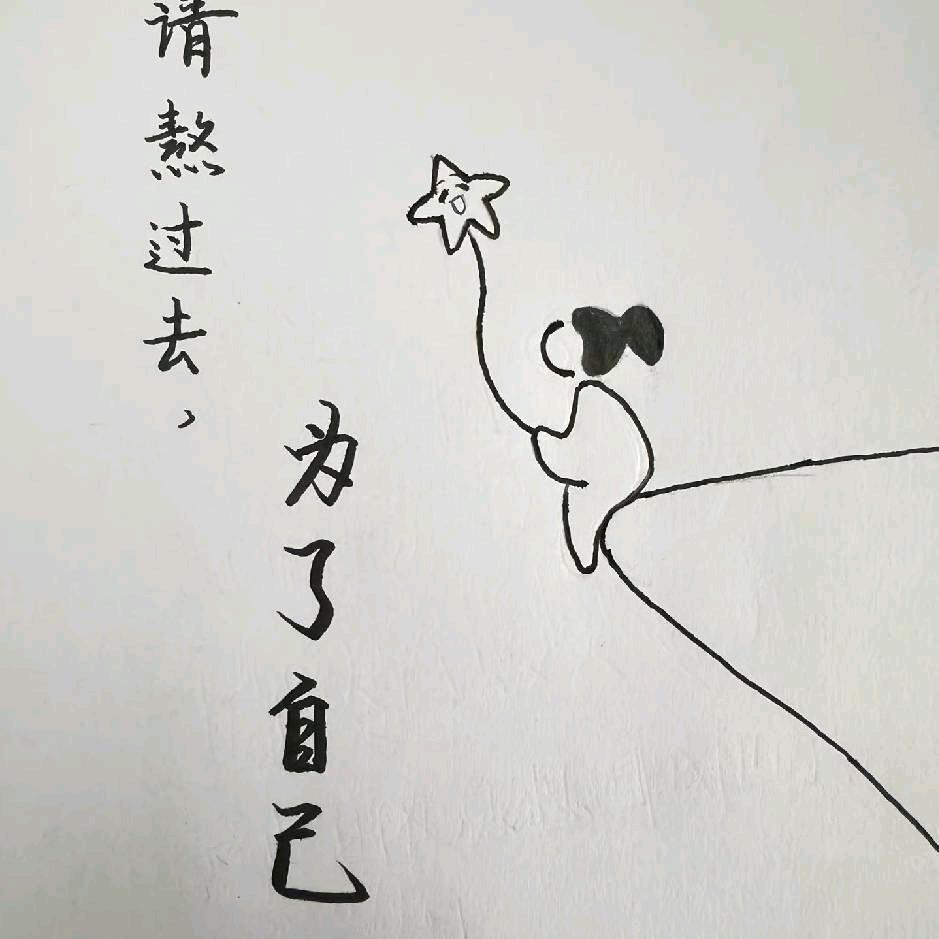 请熬过去，
为了自己